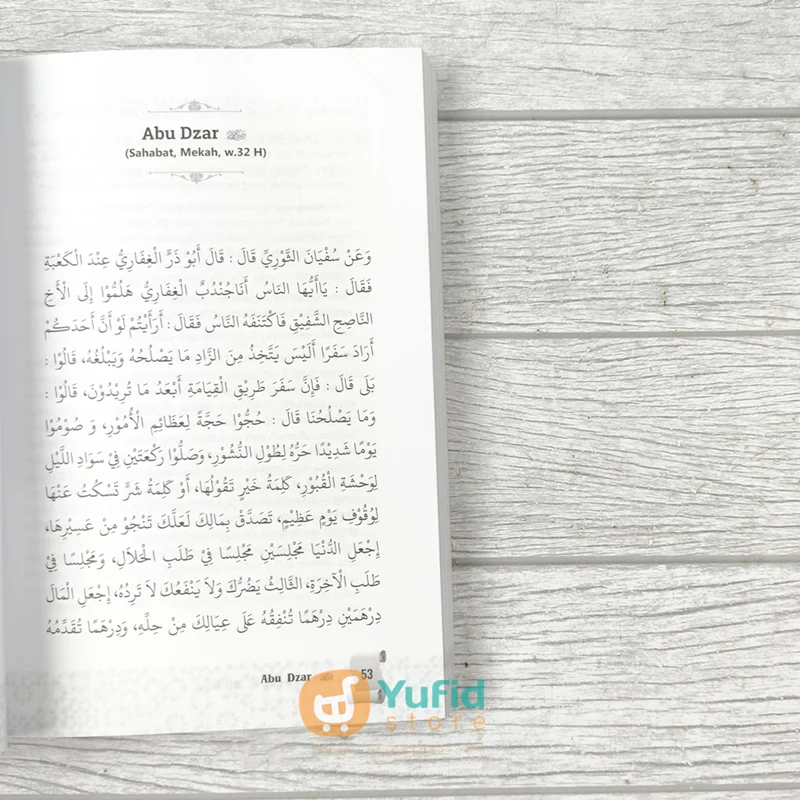 Abu Dzar
(Sahabat, Mekah, w.32 H)
وَعَنْ سُفْيَانَ الثَّوْرِيِّ قَالَ : قَالَ أَبُوْ ذَرٍّ الْغِفَارِيُّ عِنْدَ الْكَعْبَةِ
فَقَالَ : يَاأَيُّهَا النَاسُ أَنَاجُنْدُبٌ الْغِفَارِيُّ هَلُمُّوْا إِلَى الْأَخِ
النَّاصِحِ الشَّفِيْقِ فَاكْتَنَفَهُ النَّاسُ فَقَالَ : أَرَأَيْتُمْ لَوْ أَنَّ أَحَدَكُمْ
أَرَادَ سَفَرًا أَلَيْسَ يَتَّخِذُ مِنَ الزَّادِ مَا يَصْلُحُهُ وَيَبْلُغُهُ، قَالُوْا :
بَلَى قَالَ : فَإِنَّ سَفَرَ طَرِيْقِ الْقِيَامَةِ أَبْعَدُ مَا تُرِيْدُوْنَ، قَالُوْا :
وَمَا يَصْلُحُنَا قَالَ : حُجُّوْا حَجَّةً لِعَظَائِمِ الْأُمُوْرِ، وَ صُوْمُوْا
يَوْمًا شَدِيْدًا حَرُّهُ لِطُوْلِ النُّشُوْرِ، وَصَلُّوْا رَكْعَتَيْنِ فِيْ سَوَادِ اللَّيْلِ
لِوَحْشَةِ الْقُبُوْرِ، كَلِمَةُ خَيْرٍ تَقُوْلُهَا، أَوْ كَلِمَةُ شَرٍّ تَسْكُتُ عَنْهَا
لِوُقُوْفِ يَوْمٍ عَظِيْمٍ، تَصَدَّقْ بِمَالِكَ لَعَلَّكَ تَنْجُوْ مِنْ عَسِيْرِهَا،
إِجْعَلِ الدُّنْيَا مَجْلِسَيْنِ مَجْلِسًا فِيْ طَلَبِ الْحَلَالِ، وَمَجْلِسًا فِيْ
طَلَبِ الْآخِرَةِ، الثَّالِثُ يَضُرُّكَ وَلاَ يَنْفَعُكَ لاَ تَرِدُهُ، إِجْعَلِ الْمَالَ
دِرْهَمَيْنِ دِرْهَمًا تُنْفِقُهُ عَلَى عِيَالِكَ مِنْ حِلِّهِ، وَدِرْهَمًا تُقَدِّمُهُ
Abu Dzar
53
Yufid
store